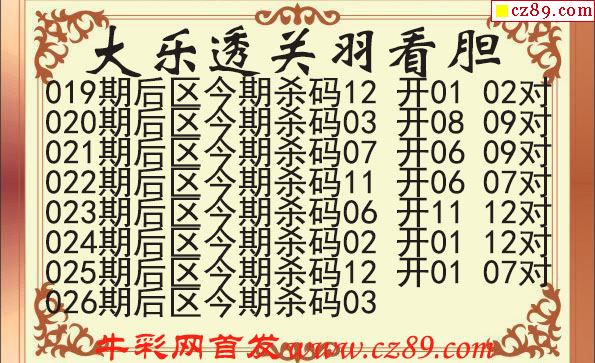 cz89.com
大乐透关羽看胆
019期后区今期杀码12 开01 02对
020期后区今期杀码03 开08 09对
021期后区今期杀码07 开06 09对
022期后区今期杀码11 开06 07对
023期后区今期杀码06 开11 12对
024期后区今期杀码02 开01 12对
025期后区今期杀码12 开01 07对
026期后区今期杀码03
牛彩网首发www.cz89.com